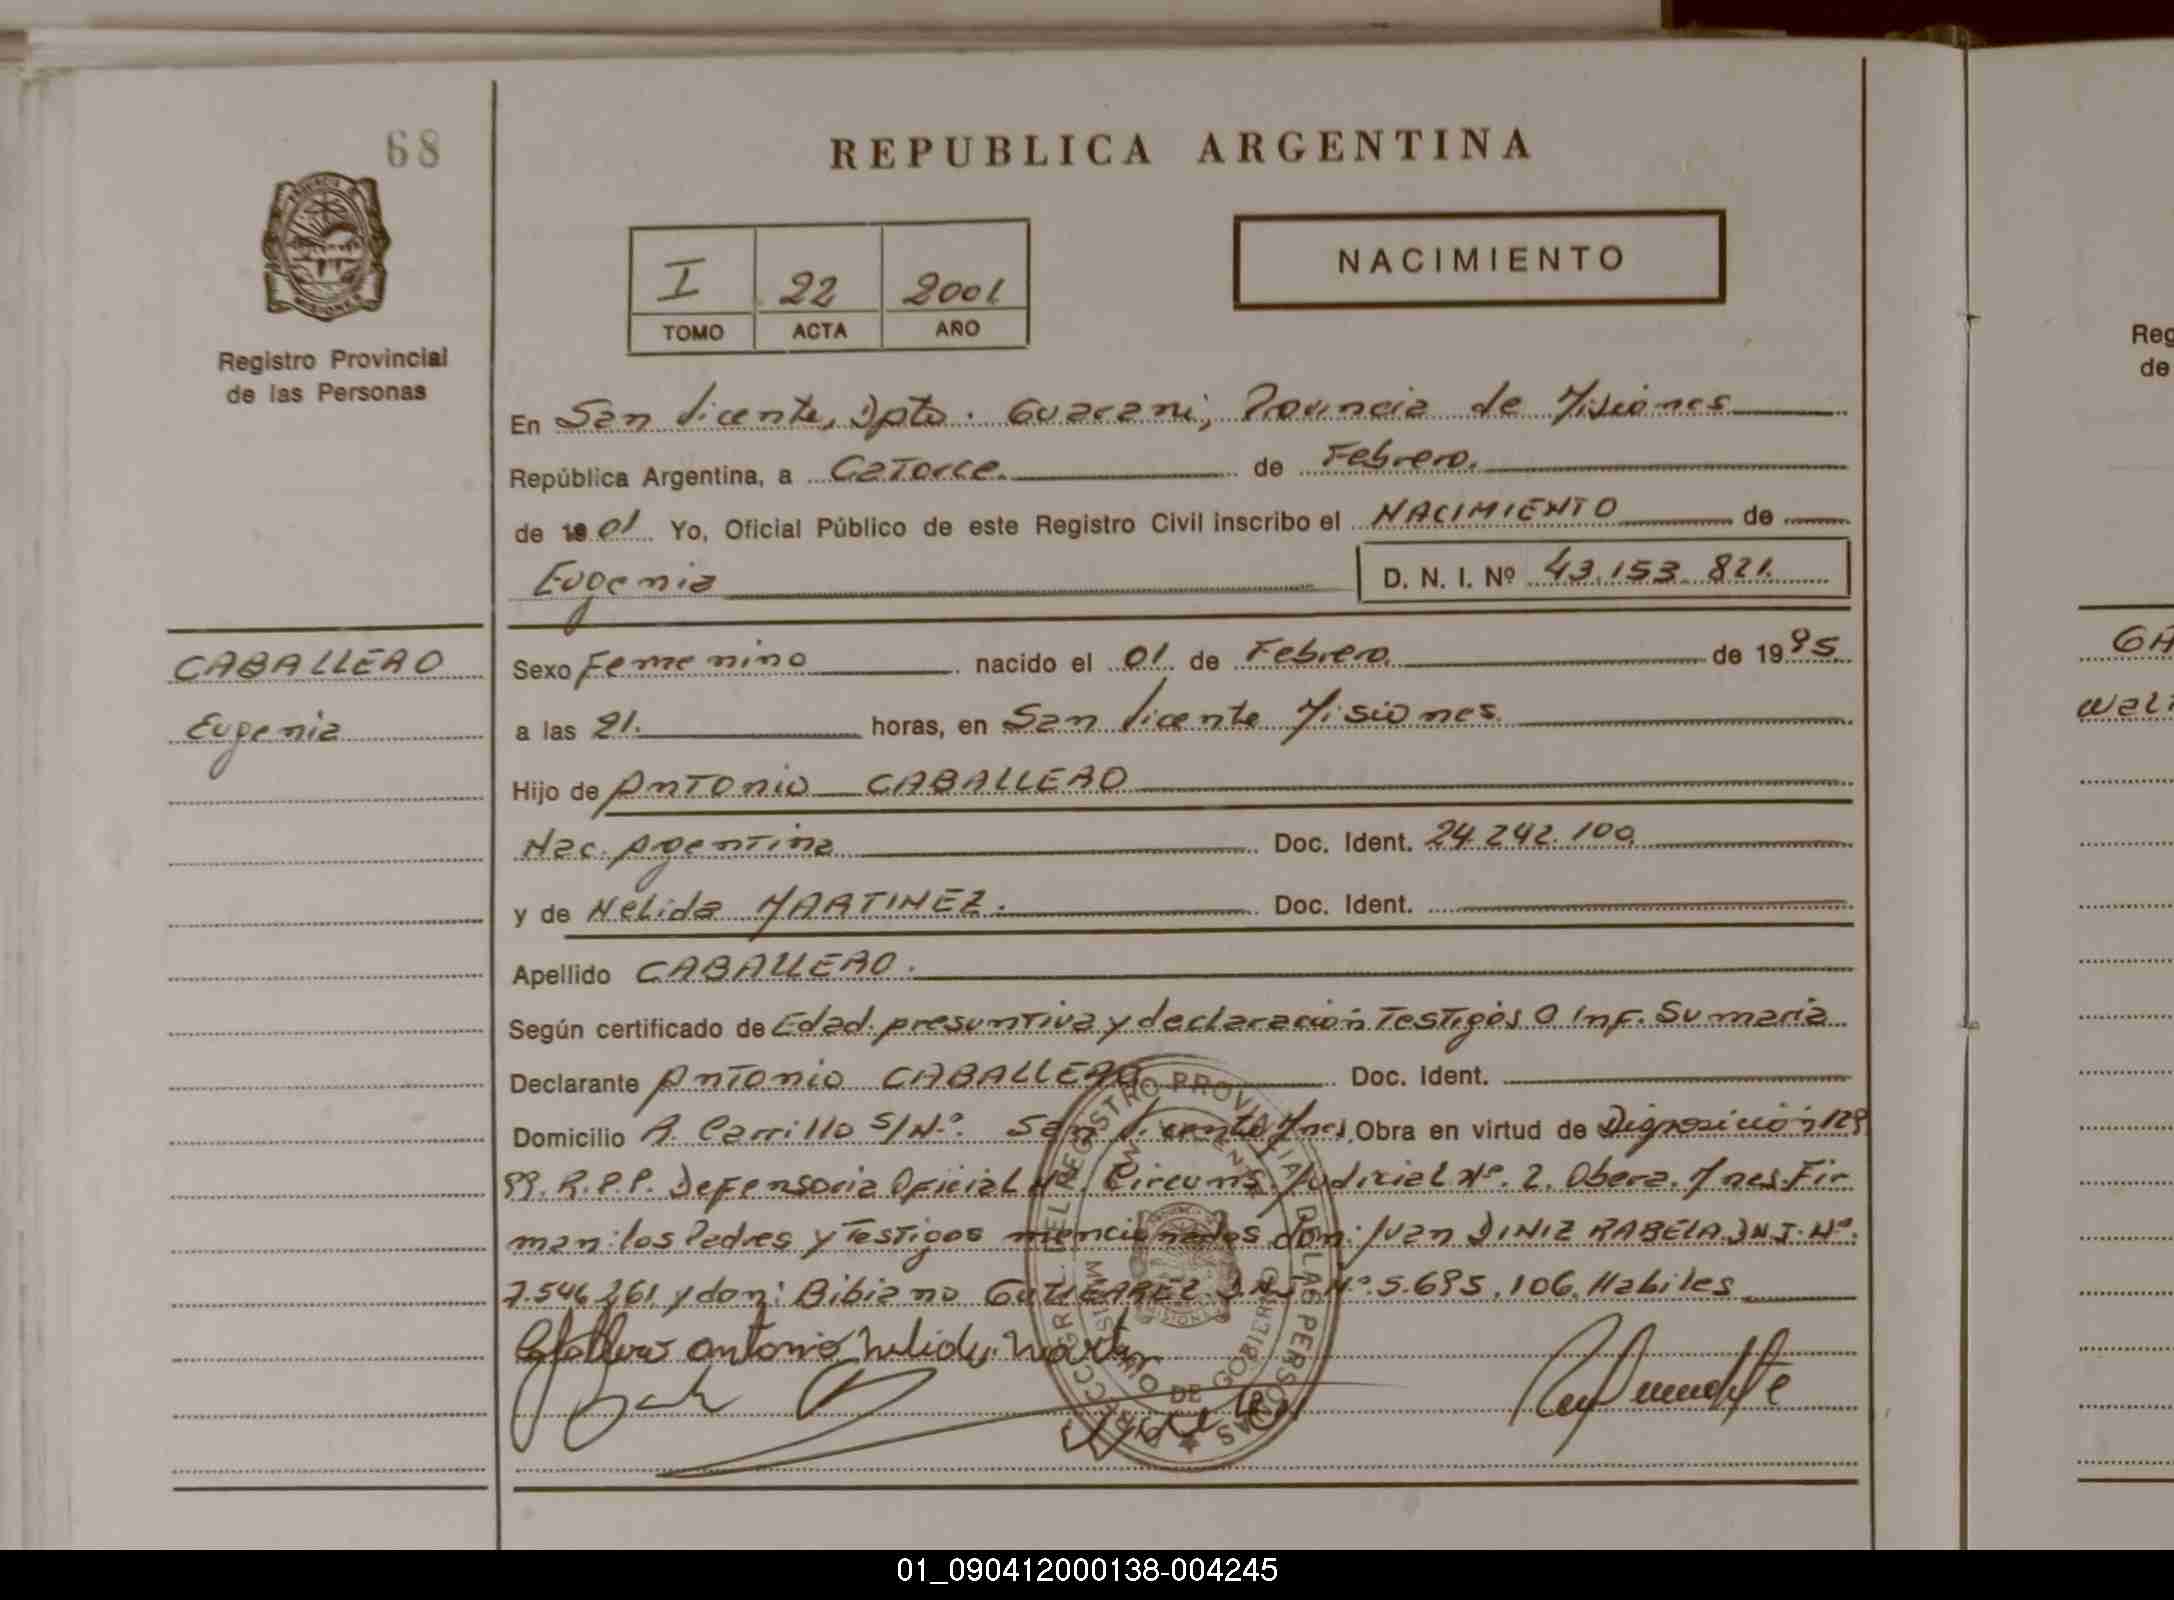 68
REPUBLICA ARGENTINA
I 22 2001
TOMO ACTA AÑO
NACIMIENTO
Registro Provincial
de las Personas
En San Vicente, Dpto. Guarani, Provincia de Misiones
República Argentina, a Catorce. de Febrero.
de 01 Yo, Oficial Público de este Registro Civil inscribo el NACIMIENTO de
Eugenia D. N. I. Nº 43.153.821.
CABALLERO
Eugenia
Sexo Femenino nacido el 01 de Febrero de 1995
a las 21. horas, en San Vicente Misiones.
Hijo de Antonio CABALLERO
Nac. Agentina Doc. Ident. 24.242.100
y de Nelida MARTINEZ. Doc. Ident.
Apellido CABALLERO.
Según certificado de Edad presuntiva y declaración Testigos O Inf. Sumaria
Declarante Antonio CABALLERO Doc. Ident.
Domicilio A. Carrillo S/Nº. San Vicente Mnes. Obra en virtud de Disposición 129
99. R.P.P. Defensoria Oficial Circuns. Judicial Nº. 2. Obera. Mnes. Fir
man: los Padres y Testigos mencionados don: Juan DINIZ RABELA D.N.I. Nº.
7.546.261, y don: Bibiano GUTIERREZ D.N.I. Nº. 5.695.106. Habiles
Caballero Antonio Nelida Martinez
DEL REGISTRO PROVINCIAL DE LAS PERSONAS
DE GOBIERNO
Reg
de
GA
Wal
01_090412000138-004245